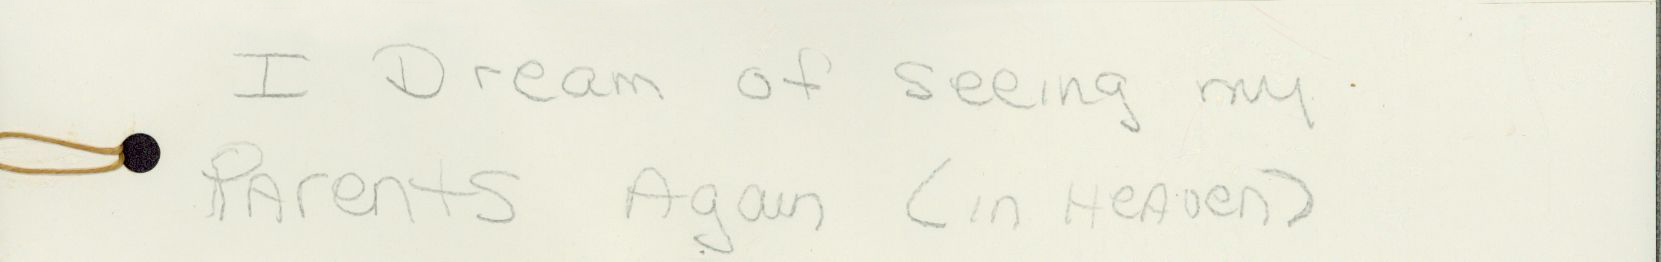 I Dream of seeing my
PArents Again (in HeAven)